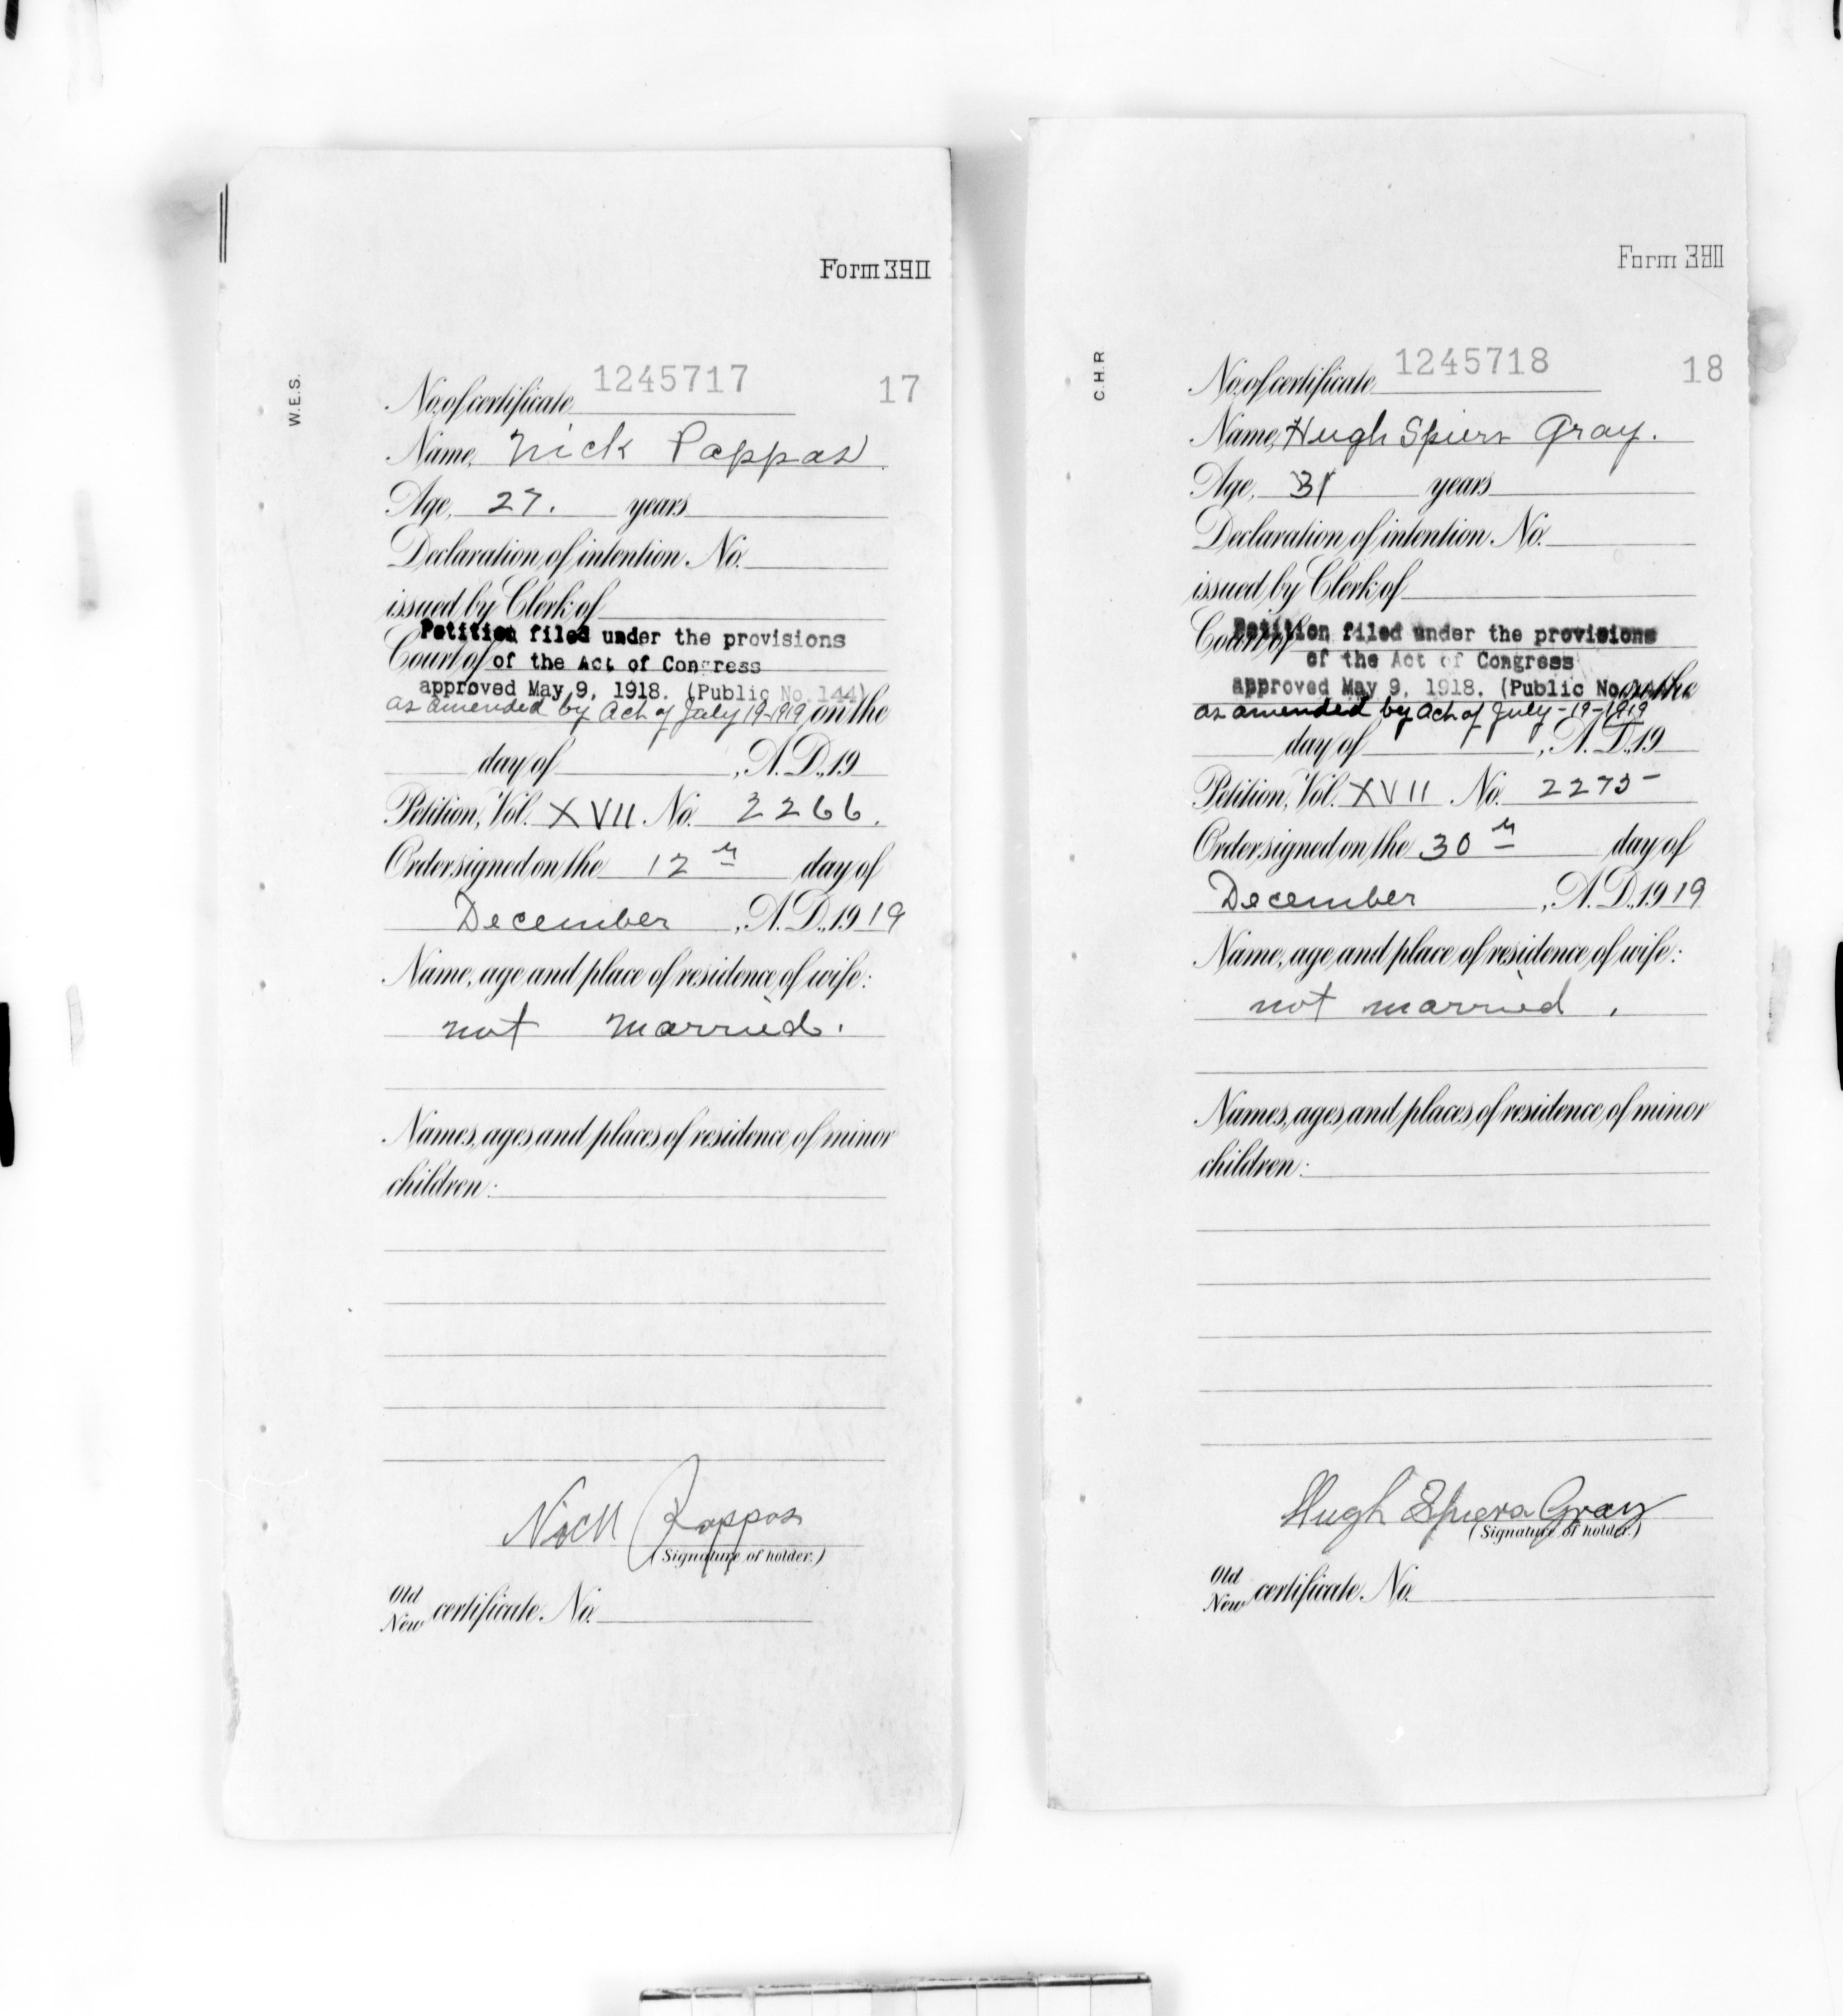 Form 390
W.E.S.
No. of certificate 1245717 17
Name, Nick Pappas.
Age, 27. years
Declaration of intention No.
issued by Clerk of
Petition filed under the provisions
Court of of the Act of Congress
approved May 9, 1918. (Public No. 144)
as amended by Act of July 19-1919, on the
day of , A.D., 19
Petition, Vol. XVII No. 2266.
Order signed on the 12th day of
December , A.D., 1919
Name, age and place of residence of wife:
not married.
Names, ages and places of residence of minor
children:
Nick Pappas
(Signature of holder.)
Old
New certificate No.
Form 390
C.H.R
No. of certificate 1245718 18
Name, Hugh Spiers Gray.
Age, 31 years
Declaration of intention No.
issued by Clerk of
Court of Petition filed under the provisions
of the Act of Congress
approved May 9, 1918. (Public No. on the
as amended by Act of July-19-1919
day of , A.D., 19
Petition, Vol. XVII No. 2275-
Order signed on the 30th day of
December , A.D., 1919
Name, age and place of residence of wife:
not married.
Names, ages and places of residence of minor
children:
Hugh Spiers Gray
(Signature of holder.)
Old
New certificate No.